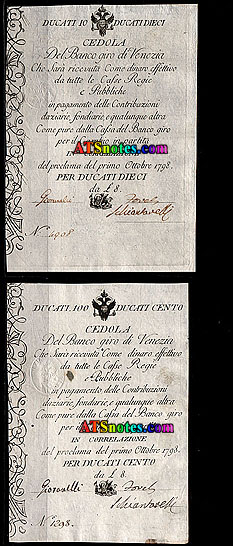 DUCATI 10 DUCATI DIECI
CEDOLA
Del Banco giro di Venezia
Che Sarà ricevuta Come dinaro effettivo
da tutte le Casse Regie
e Pubbliche
in pagamento delle Contribuzioni
daziarie, fondiarie, e qualunque altra
Come pure dalla Cassa del Banco giro
per
ATSnotes.com
del proclama del primo Ottobre 1798.
PER DUCATI DIECI
da L 8.
Giovanelli
N.° 1908
DUCATI 100 DUCATI CENTO
CEDOLA
Del Banco giro di Venezia
Che Sarà ricevuta Come dinaro effettivo
da tutte le Casse Regie
e Pubbliche
in pagamento delle Contribuzioni
daziarie, fondiarie, e qualunque altra
Come pure dalla Cassa del Banco giro
per
ATSnotes.com
IN CORRELAZIONE
del proclama del primo Ottobre 1798.
PER DUCATI CENTO
da L 8.
Giovanelli
N.° 1298.